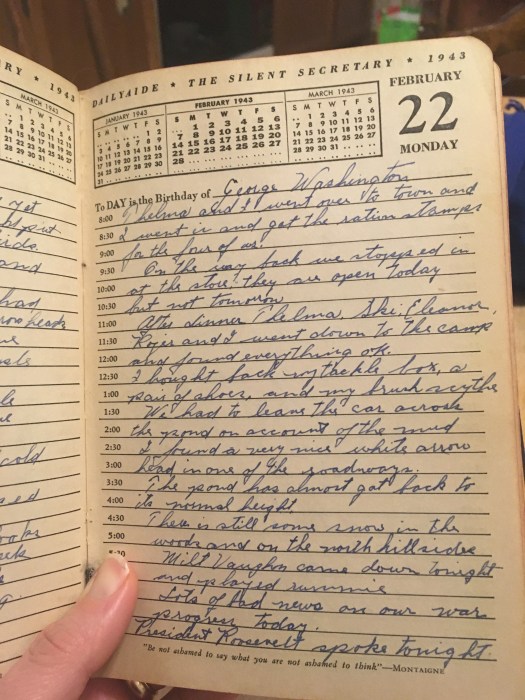 RY ★ 1943
MARCH 1943
S M T W T F S
1 2 3 4 5 6
7 8 9 10 11 12 13
14 15 16 17 18 19 20
21 22 23 24 25 26 27
28 29 30 31
yet
put
and
had
arrowheads
cold
DAILYAIDE ★ THE SILENT SECRETARY ★ 1943
JANUARY 1943
S M T W T F S
1 2
3 4 5 6 7 8 9
10 11 12 13 14 15 16
17 18 19 20 21 22 23
24 25 26 27 28 29 30
31
FEBRUARY 1943
S M T W T F S
1 2 3 4 5 6
7 8 9 10 11 12 13
14 15 16 17 18 19 20
21 22 23 24 25 26 27
28
MARCH 1943
S M T W T F S
1 2 3 4 5 6
7 8 9 10 11 12 13
14 15 16 17 18 19 20
21 22 23 24 25 26 27
28 29 30 31
FEBRUARY
22
MONDAY
To DAY is the Birthday of George Washington
8:00 Thelma and I went over to town and
8:30 I went in and got the ration stamps
9:00 for the four of us.
9:30 On the way back we stopped in
10:00 at the store. they are open today
10:30 but not tomorrow
11:00 After dinner Thelma, Ike, Eleanor,
11:30 Roger and I went down to the camp
12:00 and found everything ok.
12:30 I bought back my tackle box, a
1:00 pair of shoes, and my brush scythe
1:30 We had to leave the car across
2:00 the pond on account of the mud
2:30 I found a very nice white arrow
3:00 head in one of the roadways.
3:30 The pond has almost got back to
4:00 its normal height
4:30 There is still some snow in the
5:00 woods and on the north hillsides
Milt Vaughon came down tonight
and played rummie
Lots of bad news on our war
progress today.
President Roosevelt spoke tonight.
"Be not ashamed to say what you are not ashamed to think"—MONTAIGNE